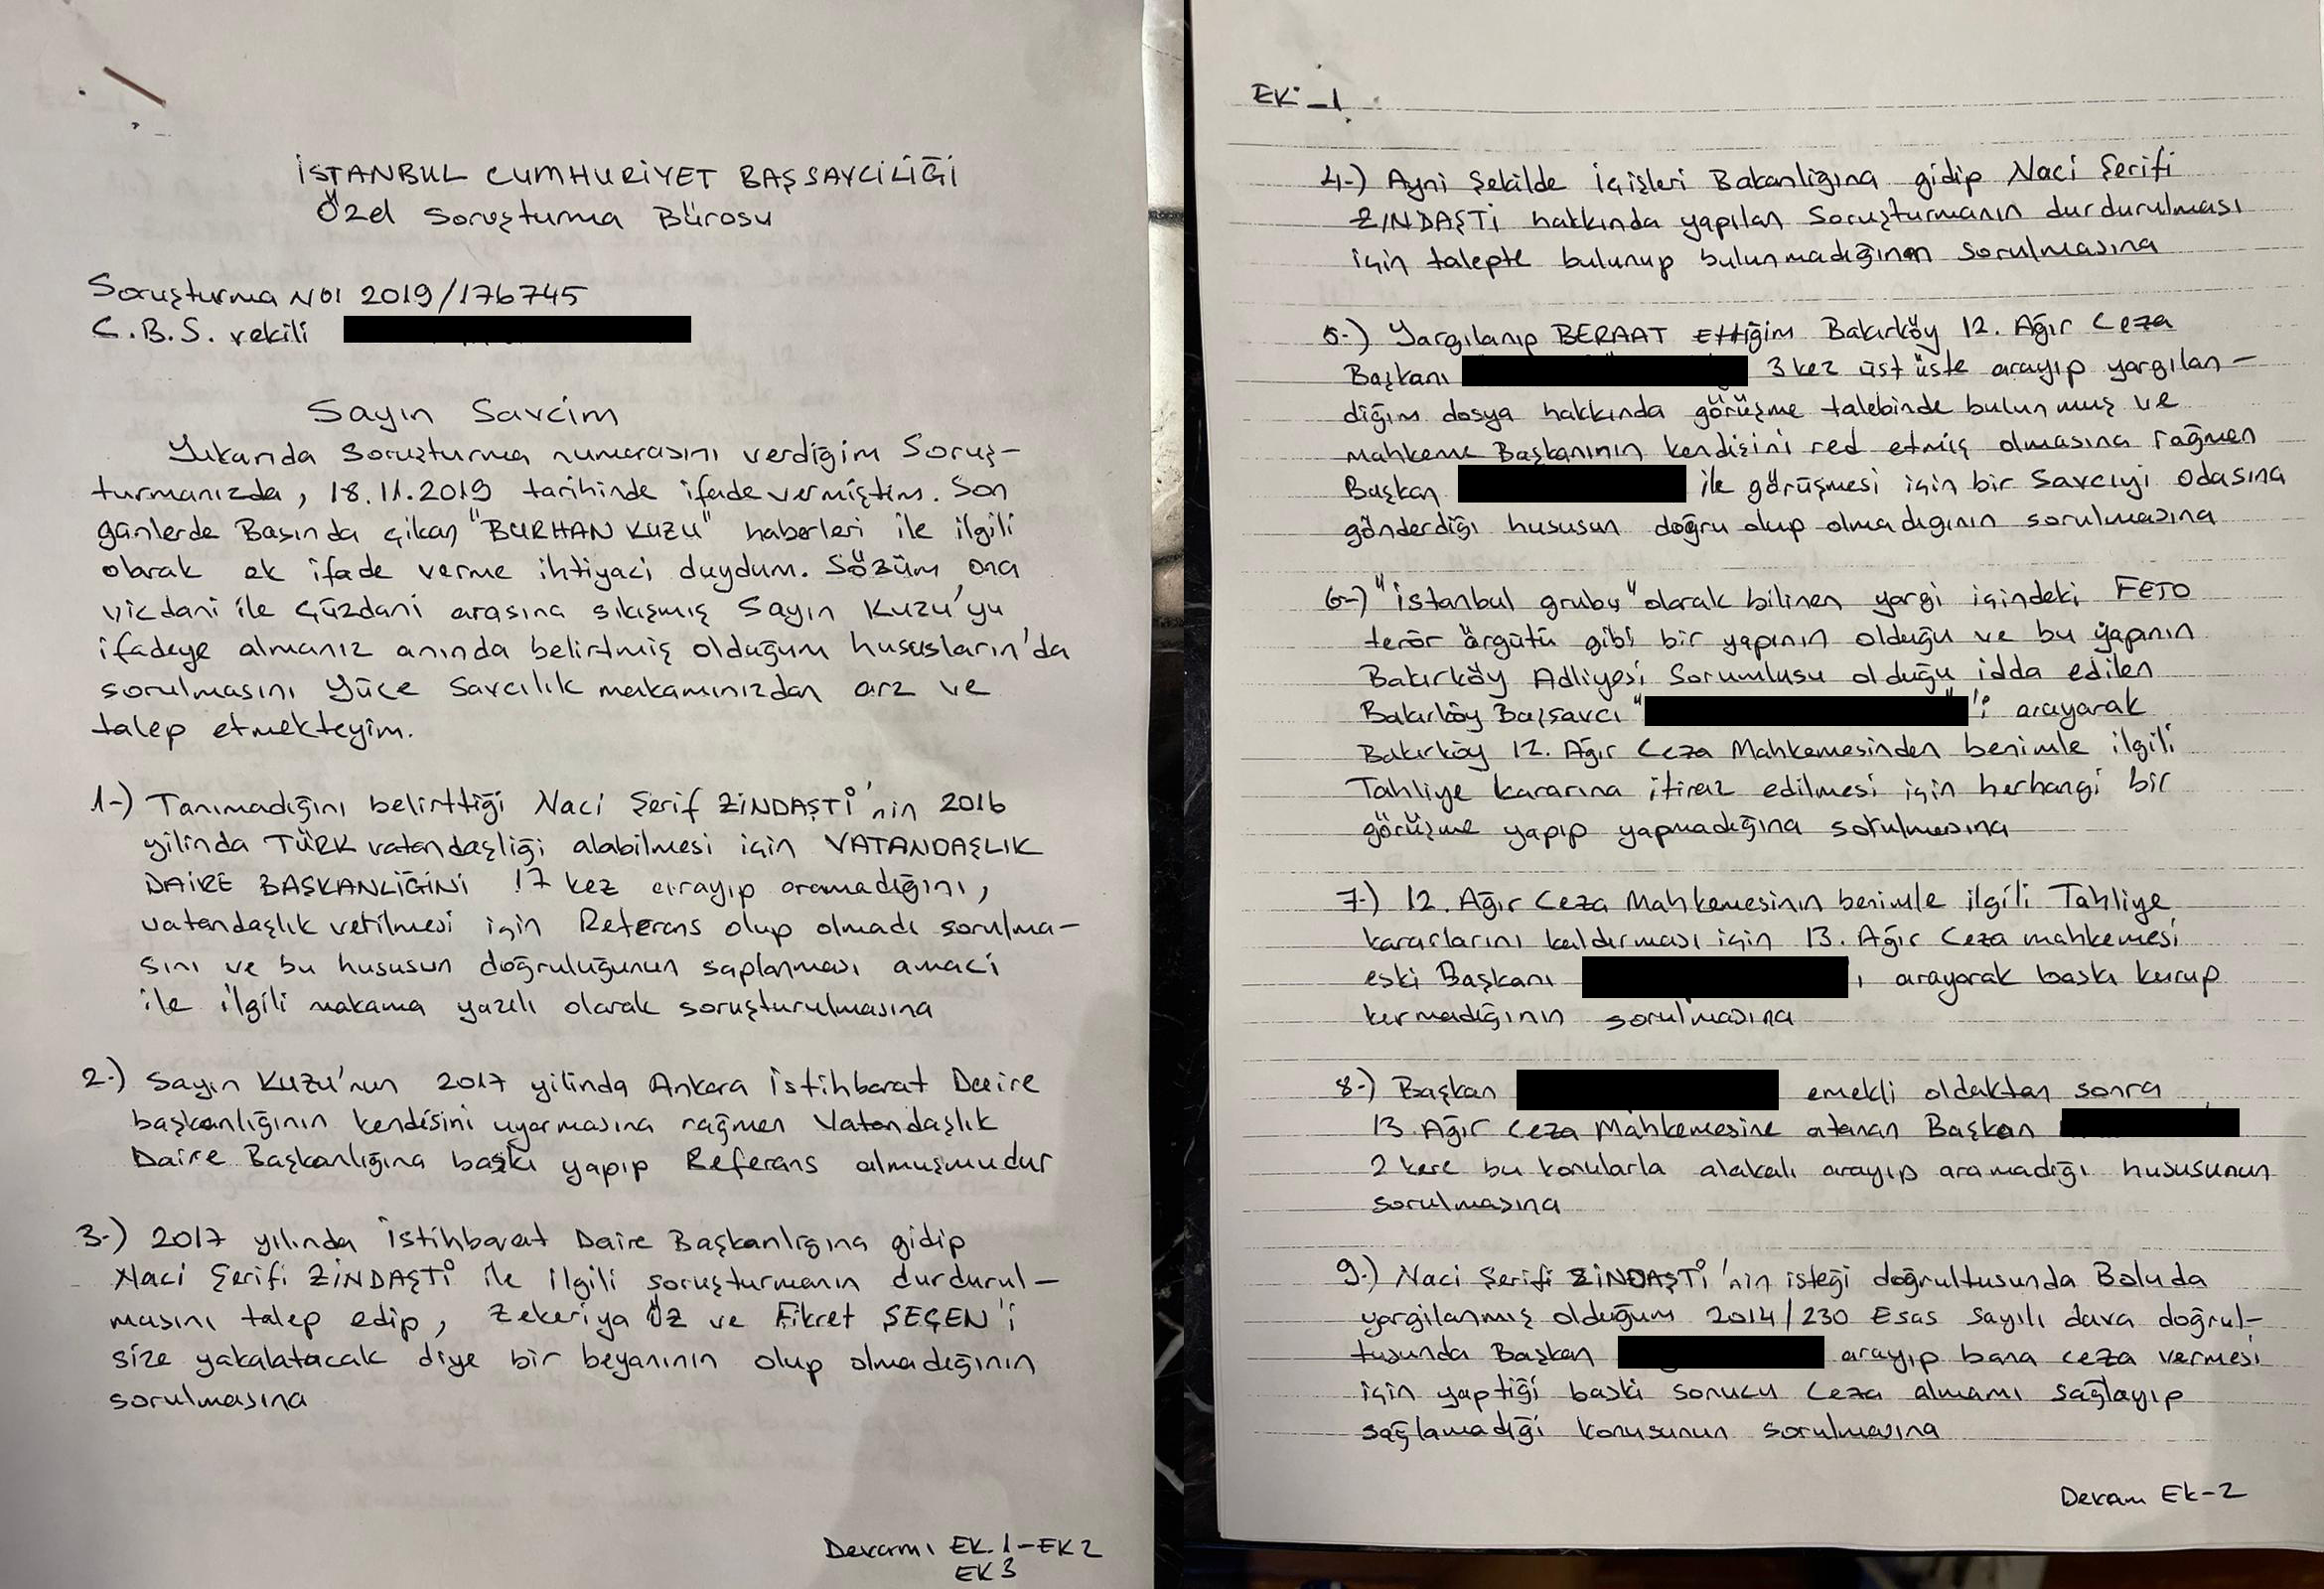 İSTANBUL CUMHURİYET BAŞSAVCİLİĞİ
Özel Soruşturma Bürosu
Soruşturma NOI 2019/176745
C.B.S. vekili
Sayın Savcim
Yukarıda Soruşturma numarasını verdiğim Soruş-
turmanızda, 18.11.2019 tarihinde ifade vermiştim. Son
günlerde Basında çikan "BURHAN KUZU" haberleri ile ilgili
olarak ek ifade verme ihtiyaci duydum. Sözüm ona
vicdani ile Cüzdani arasına sıkışmış Sayın Kuzu'yu
ifadeye almanız anında belirtmiş olduğum hususların'da
sorulmasını Yüce Savcılık makamınızdan arz ve
talep etmekteyim.
1-) Tanımadığını belirttiği Naci Şerif ZİNDAŞTİ'nin 2016
yilinda TÜRK vatandaşliği alabilmesi için VATANDAŞLIK
DAİRE BAŞKANLİĞİNİ 17 kez arayıp aramadığını,
vatandaşlık verilmesi için Referans olup olmadı sorulma-
sını ve bu hususun doğruluğunun saplanması amaci
ile ilgili makama yazılı olarak soruşturulmasına
2-) Sayın Kuzu'nun 2017 yilinda Ankara İstihbarat Daire
başkanlığının kendisini uyarmasına rağmen Vatandaşlık
Daire Başkanlığına baskı yapıp Referans olmuşmudur
3-) 2017 yılında İstihbarat Daire Başkanlığına gidip
Naci Şerifi ZİNDAŞTİ ile ilgili soruşturmanın durdurul-
masını talep edip, Zekeriya ÖZ ve Fikret SEÇEN'i
size yakalatacak diye bir beyanının olup olmadığının
sorulmasına
Devamı EK.1-EK2
EK3
EK-1
4-) Ayni Şekilde İçişleri Bakanlığına gidip Naci Şerifi
ZİNDAŞTİ hakkında yapılan Soruşturmanın durdurulması
için talepte bulunup bulunmadığının sorulmasına
5-) Yargılanıp BERAAT Ettiğim Bakırköy 12. Ağır Ceza
Başkanı 3 kez üst üste arayıp yargılan-
dığım dosya hakkında görüşme talebinde bulunmuş ve
mahkeme Başkanının kendisini red etmiş olmasına rağmen
Başkan ile görüşmesi için bir Savcıyi odasına
gönderdiği hususun doğru olup olmadıgının sorulmasına
6-) "İstanbul grubu" olarak bilinen yargi içindeki FETO
terör örgütü gibi bir yapının olduğu ve bu yapının
Bakırköy Adliyesi Sorumlusu olduğu idda edilen
Bakırköy Başsavcı " "'i arayarak
Bakırköy 12. Ağır Ceza Mahkemesinden benimle ilgili
Tahliye kararına itiraz edilmesi için herhangi bir
görüşme yapıp yapmadığına sorulmasına
7-) 12. Ağır Ceza Mahkemesinin benimle ilgili Tahliye
kararlarını kaldırması için 13. Ağır Ceza mahkemesi
eski Başkanı , arayarak baskı kurup
kurmadığının sorulmasına
8-) Başkan emekli oldaktan sonra
13. Ağır Ceza Mahkemesine atanan Başkan
2 kere bu konularla alakalı arayıp aramadığı hususunun
sorulmasına
9-) Naci Şerifi ZİNDAŞTİ'nin isteği doğrultusunda Boluda
yargilanmış olduğum 2014/230 Esas Sayılı dava doğrul-
tusunda Başkan arayıp bana ceza vermesi
için yaptiği baski sonucu Ceza almamı sağlayıp
sağlamadıği konusunun sorulmasına
Devam Ek-2